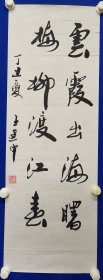 雲霞出海曙
梅柳渡江春
丁丑夏